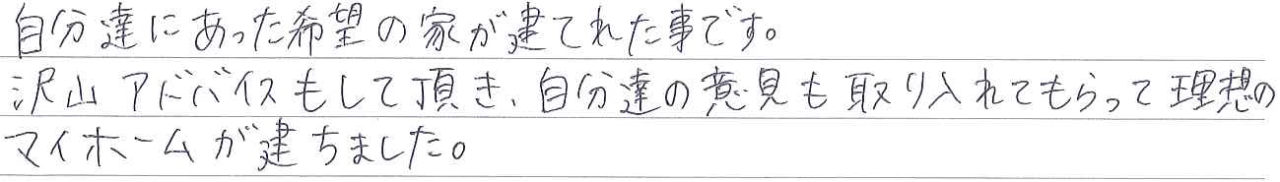 自分達にあった希望の家が建てれた事です。
沢山アドバイスもして頂き、自分達の意見も取り入れてもらって理想の
マイホームが建ちました。